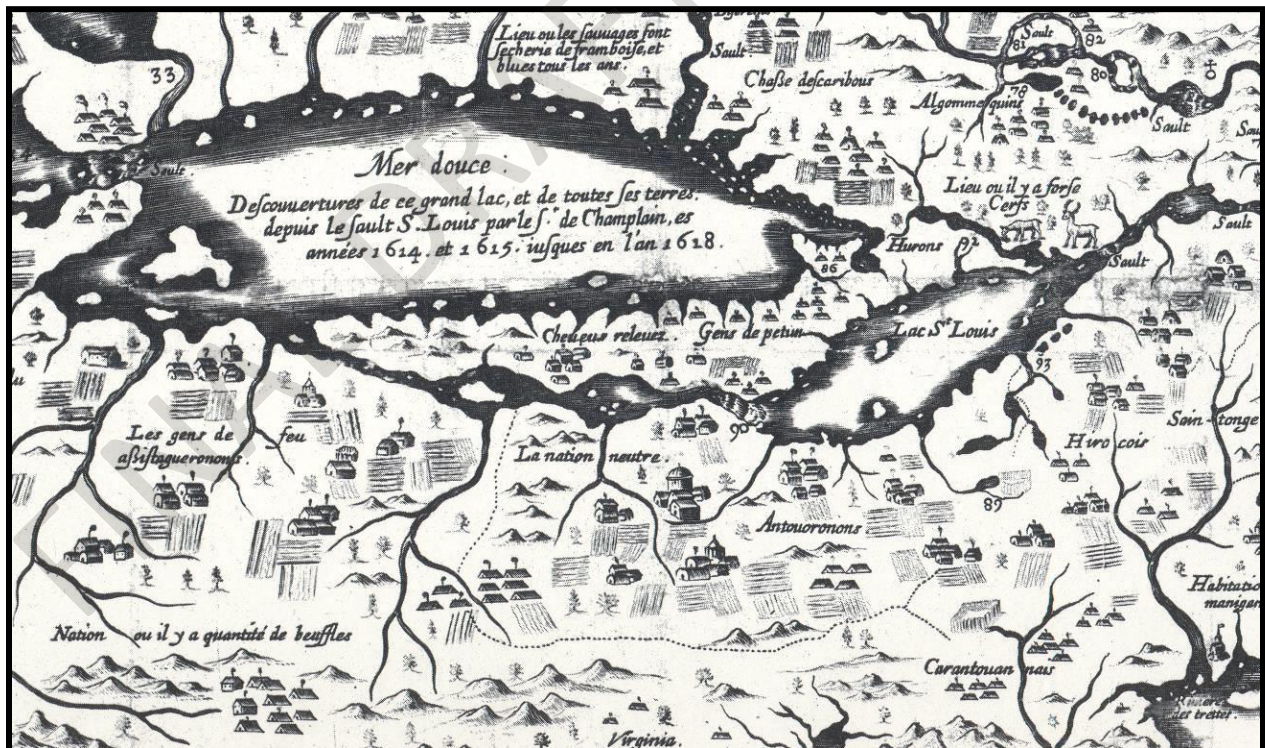 Lieu ou les sauuages font
secherie de framboise, et
blues tous les ans.
Sault
81
82
Sault.
33
Chasse des caribous
80
78
Algommequins
Sault
Sault
Mer douce.
Descouuertures de ce grand lac, et de toutes ses terres.
depuis le sault St. Louis par le sr. de Champlain, es
années 1614. et 1615. iusques en l'an 1618.
Lieu ou il y a force
Cerfs
Sault
Hurons
92
Sault
86
Cheueus releuez.
Gens de petun
Lac St. Louis
93
Les gens de feu
assistagueronons.
90
La nation neutre.
Hirocois
Sain-tonge
89
Antouoronons
Habitatio
manigan
Nation ou il y a quantité de beuffles
Carantouannais
Riuiere
des trettes.
Virginia.
FINAL DRAFT